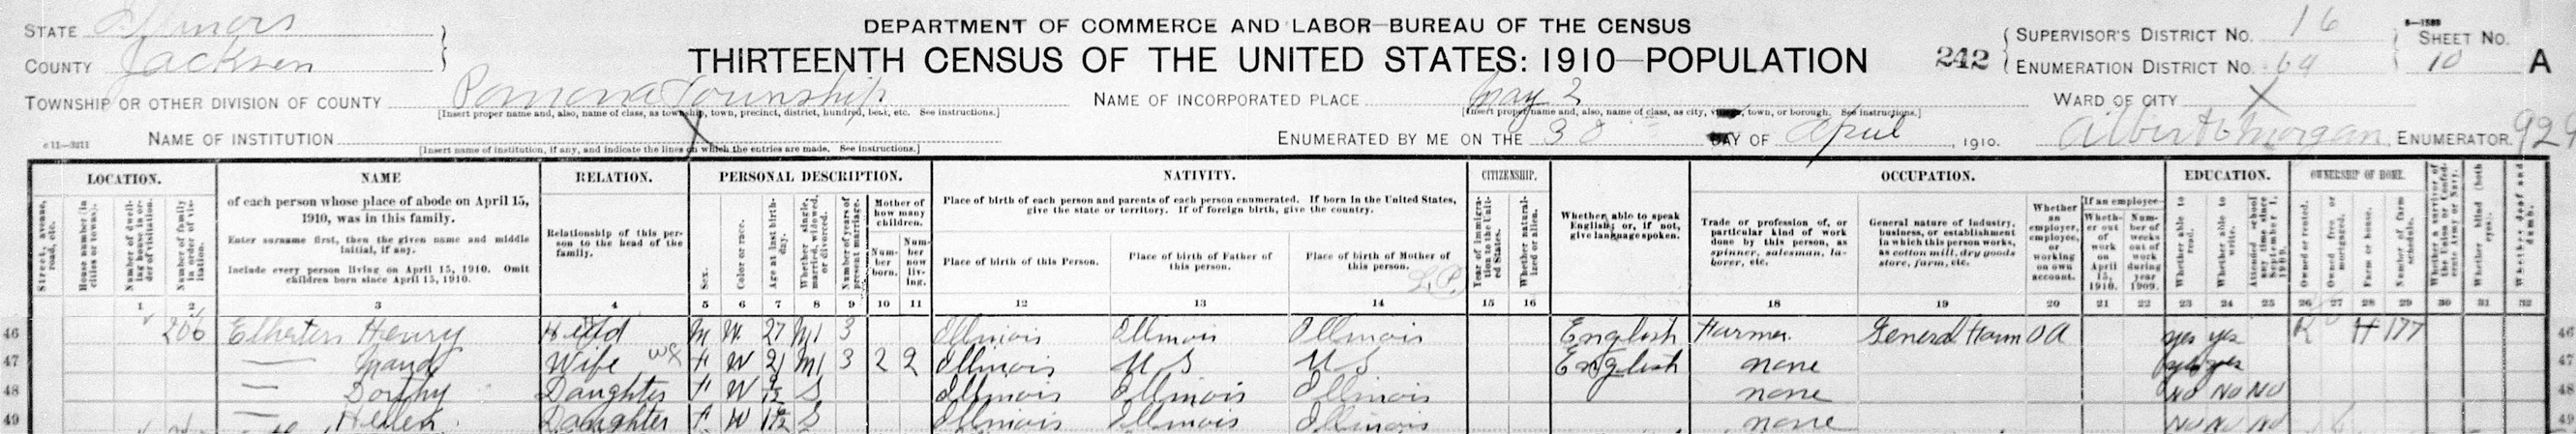 DEPARTMENT OF COMMERCE AND LABOR—BUREAU OF THE CENSUS
THIRTEENTH CENSUS OF THE UNITED STATES: 1910—POPULATION
STATE Illinois
COUNTY Jackson
TOWNSHIP OR OTHER DIVISION OF COUNTY Pomona Township
[Insert proper name and, also, name of class, as township, town, precinct, district, hundred, beat, etc. See instructions.]
NAME OF INSTITUTION X
[Insert name of institution, if any, and indicate the lines on which the entries are made. See instructions.]
NAME OF INCORPORATED PLACE May 2
[Insert proper name and, also, name of class, as city, town, or borough. See instructions.]
ENUMERATED BY ME ON THE 30 DAY OF April, 1910.
242
SUPERVISOR'S DISTRICT No. 16
ENUMERATION DISTRICT No. 69
SHEET No.
10 A
WARD OF CITY X
Albert Morgan, ENUMERATOR. 929
LOCATION. NAME RELATION. PERSONAL DESCRIPTION. NATIVITY. CITIZENSHIP. OCCUPATION. EDUCATION. OWNERSHIP OF HOME.
Street, avenue, road, etc.
House number (in cities or towns).
Number of dwelling house in order of visitation.
Number of family in order of visitation.
of each person whose place of abode on April 15, 1910, was in this family.
Enter surname first, then the given name and middle initial, if any.
Include every person living on April 15, 1910. Omit children born since April 15, 1910.
Relationship of this person to the head of the family.
Sex.
Color or race.
Age at last birthday.
Whether single, married, widowed, or divorced.
Number of years of present marriage.
Mother of how many children.
Number born.
Number now living.
Place of birth of each person and parents of each person enumerated. If born in the United States, give the state or territory. If of foreign birth, give the country.
Place of birth of this Person.
Place of birth of Father of this person.
Place of birth of Mother of this person.
Year of immigration to the United States.
Whether naturalized or alien.
Whether able to speak English; or, if not, give language spoken.
Trade or profession of, or particular kind of work done by this person, as spinner, salesman, laborer, etc.
General nature of industry, business, or establishment in which this person works, as cotton mill, dry goods store, farm, etc.
Whether an employer, employee, or working on own account.
If an employee—
Whether out of work on April 15, 1910.
Number of weeks out of work during year 1909.
Whether able to read.
Whether able to write.
Attended school any time since September 1, 1909.
Owned or rented.
Owned free or mortgaged.
Farm or house.
Number of farm schedule.
Whether a survivor of the Union or Confederate Army or Navy.
Whether blind (both eyes).
Whether deaf and dumb.
1 2 3 4 5 6 7 8 9 10 11 12 13 14 15 16 18 19 20 21 22 23 24 25 26 27 28 29 30 31 32
46 206 Henry Head M W 27 M1 3 Illinois Illinois Illinois English Farmer General Farm OA yes yes R 177 46
47 — Wife F W 21 M1 3 2 2 Illinois U S U S English none yes yes 47
48 — Dorthy Daughter F W S Illinois Illinois Illinois none No No No 48
49 — Hellen Daughter F W S Illinois Illinois Illinois none No No No 49